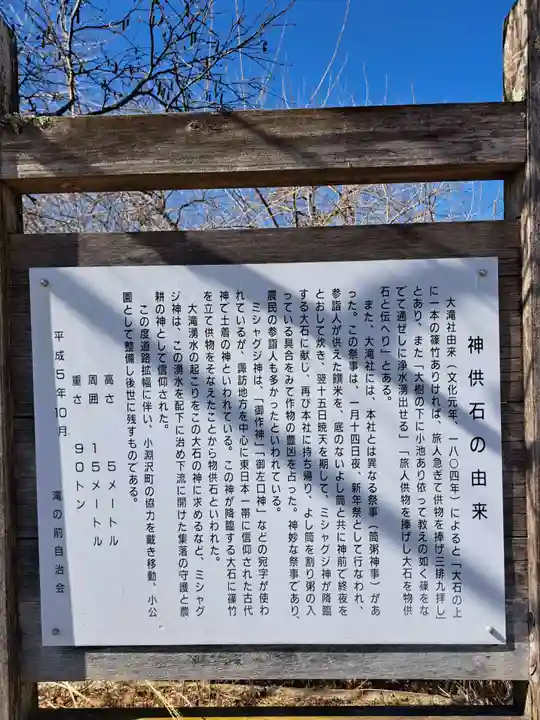 神供石の由来
大滝社由来（文化元年、一八〇四年）によると「大石の上
に一本の篠竹ありければ、旅人急ぎて供物を捧げ三拝九拝し」
とあり、また「大樹の下に小池あり依って教えの如く篠をな
でて通ぜしに浄水湧出せる」「旅人供物を捧げし大石を物供
石と伝へり」とある。
また、大滝社には、本社とは異なる祭事（筒粥神事）があ
った。この祭事は、一月十四日夜、新年祭として行なわれ、
参詣人が供えた饌米を、底のないよし筒と共に神前で終夜を
とおして炊き、翌十五日暁天を期して、ミシャグジ神が降臨
する大石に献じ、再び本社に持ち帰り、よし筒を割り粥の入
っている具合をみて作物の豊凶を占った。神妙な祭事であり、
農民の参詣人も多かったといわれている。
ミシャグジ神は、「御作神」「御左口神」などの宛字が使わ
れているが、諏訪地方を中心に東日本一帯に信仰された古代
神で土着の神といわれている。この神が降臨する大石に篠竹
を立て供物をそなえたことから物供石といわれた。
大滝湧水の起こりをこの大石の神に求めるなど、ミシャグ
ジ神は、この湧水を配下に治め下流に開けた集落の守護と農
耕の神として信仰された。
この度道路拡幅に伴い、小淵沢町の協力を戴き移動、小公
園として整備し後世に残すものである。
高さ　５メートル
周囲　１５メートル
重さ　９０トン
平成５年１０月　滝の前自治会